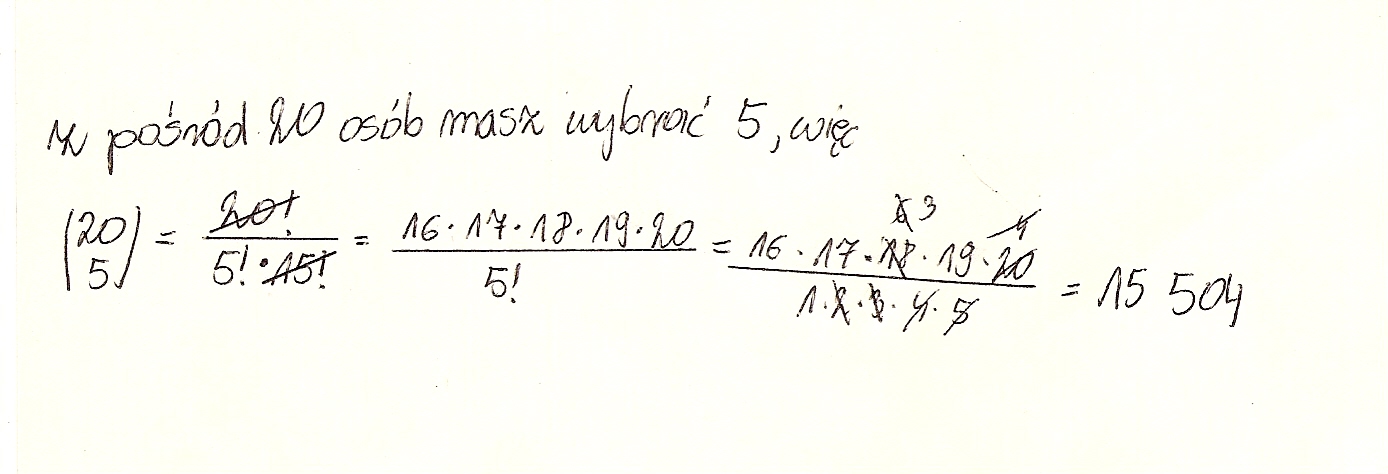 z pośród 20 osób masz wybrać 5, więc
(20 5) = 20! / 5! · 15! = 16 · 17 · 18 · 19 · 20 / 5! = 16 · 17 · 18 6 3 · 19 · 20 4 / 1 · 2 · 3 · 4 · 5 = 15 504